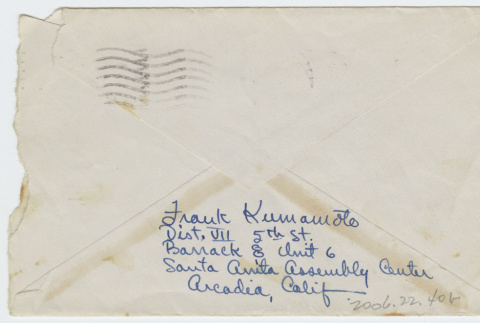 Frank Kumamoto
Dist. VII 5th St.
Barrack 8 Unit 6
Santa Anita Assembly Center
Arcadia, Calif
2006.22.40b